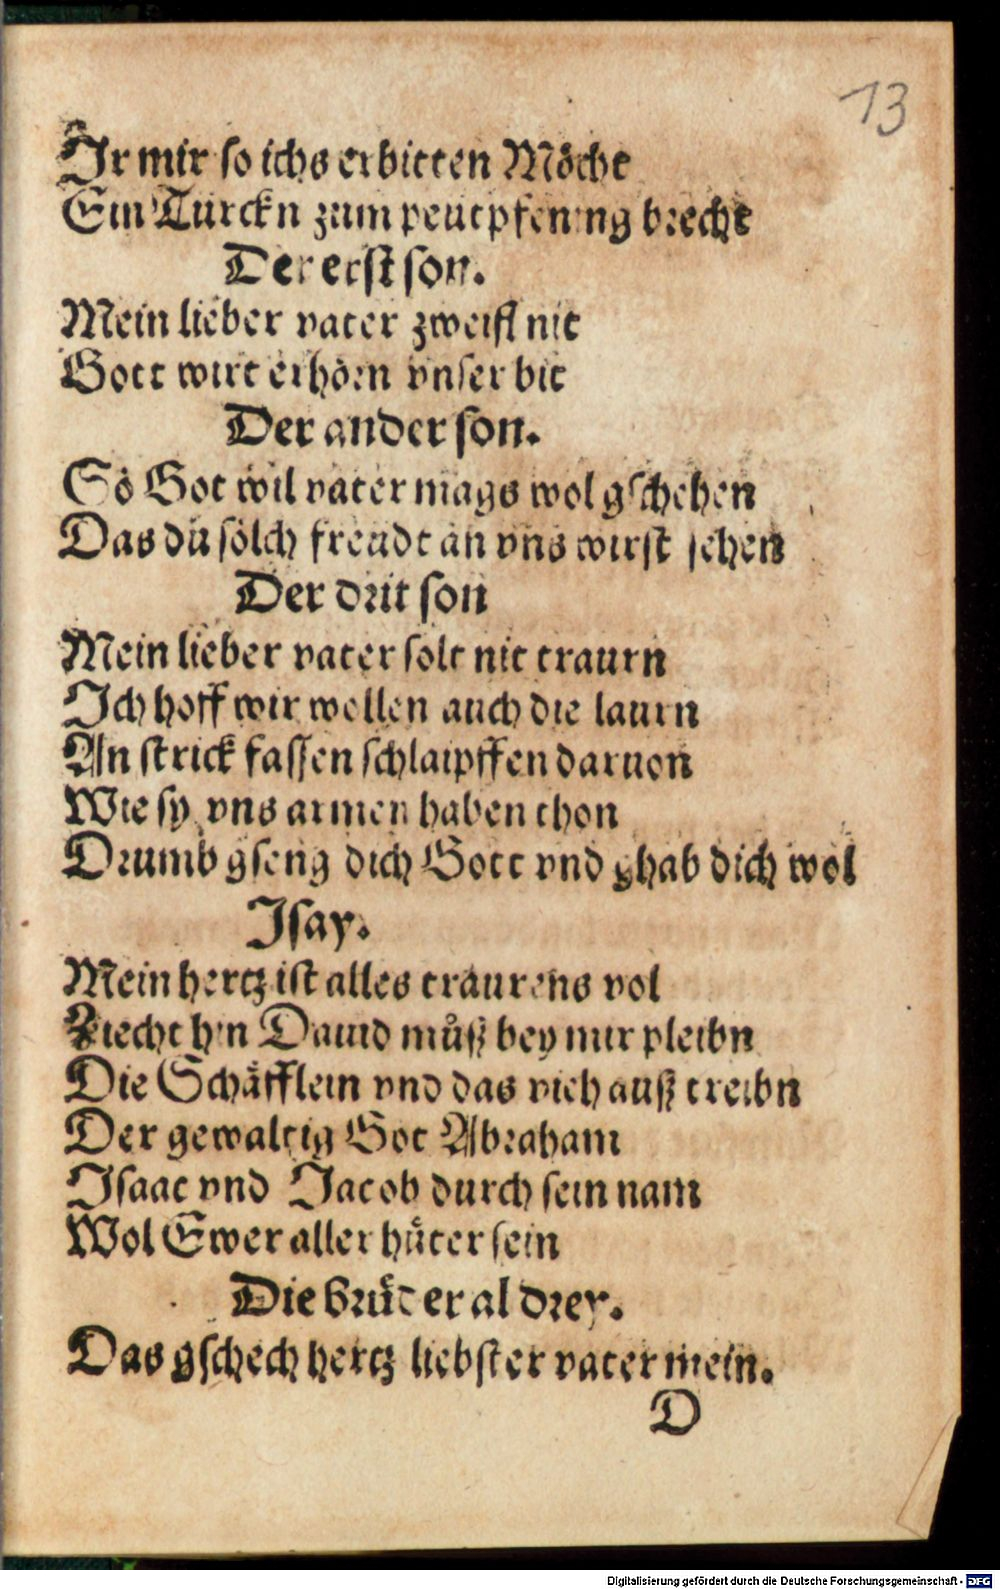 13
Jr mir so ichs erbitten Möcht
Ein Türckn zum peutpfenning brecht
Der erst son.
Mein lieber vater zweifl nit
Gott wirt erhörn vnser bit
Der ander son.
So Got wil vater mags wol gschehen
Das du solch freudt an vns wirst sehen
Der drit son
Mein lieber vater solt nit traurn
Jch hoff wir wellen auch die laurn
An strick fassen schlaipffen daruon
Wie sy vns armen haben thon
Drumb gseng dich Gott vnd ghab dich wol
Jsay.
Mein hertz ist alles traurens vol
Ziecht hin Dauid můß bey mir pleibn
Die Schäfflein vnd das vieh auß treibn
Der gewaltig Got Abraham
Jsaac vnd Jacob durch sein nam
Wol Ewer aller hüter sein
Die brüder al drey.
Das gschech hertz liebster vater mein.
D
Digitalisierung gefördert durch die Deutsche Forschungsgemeinschaft - DFG